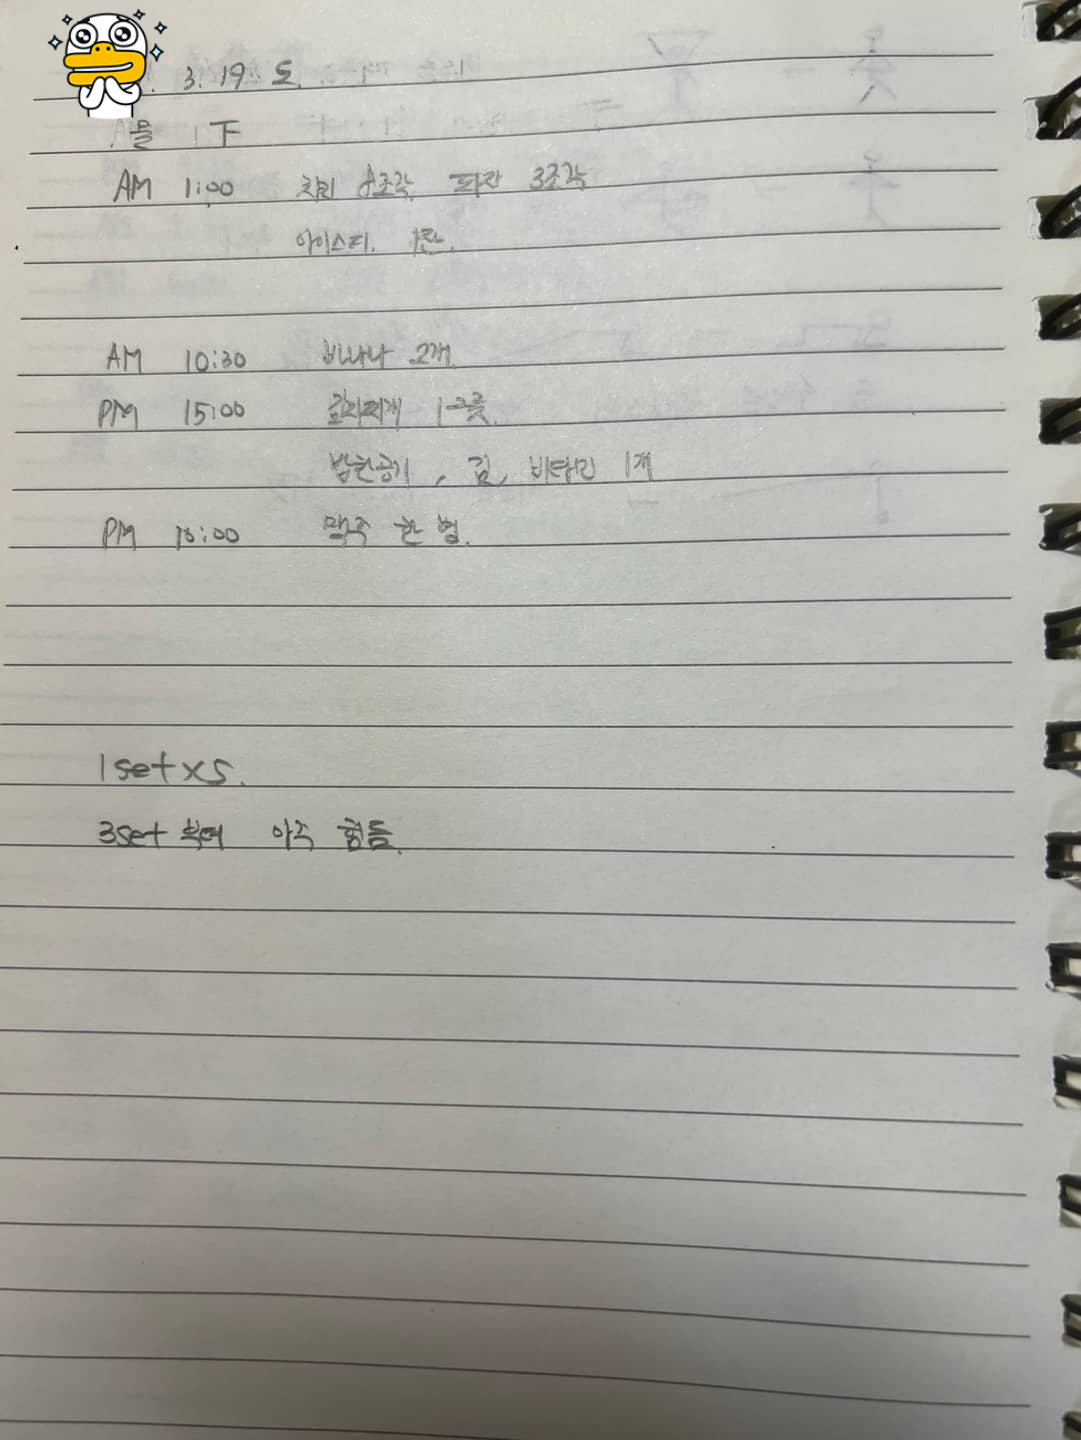 3. 19 토.
물 下
AM 1:00 치킨 8조각, 피자 3조각
아이스티. 1잔.
AM 10:30 바나나 2개.
PM 15:00 김치찌개 1그릇.
밥한공기, 김, 비타민 1개
PM :00 맥주 한 병.
1set x5.
3set 부터 아주 힘듬.